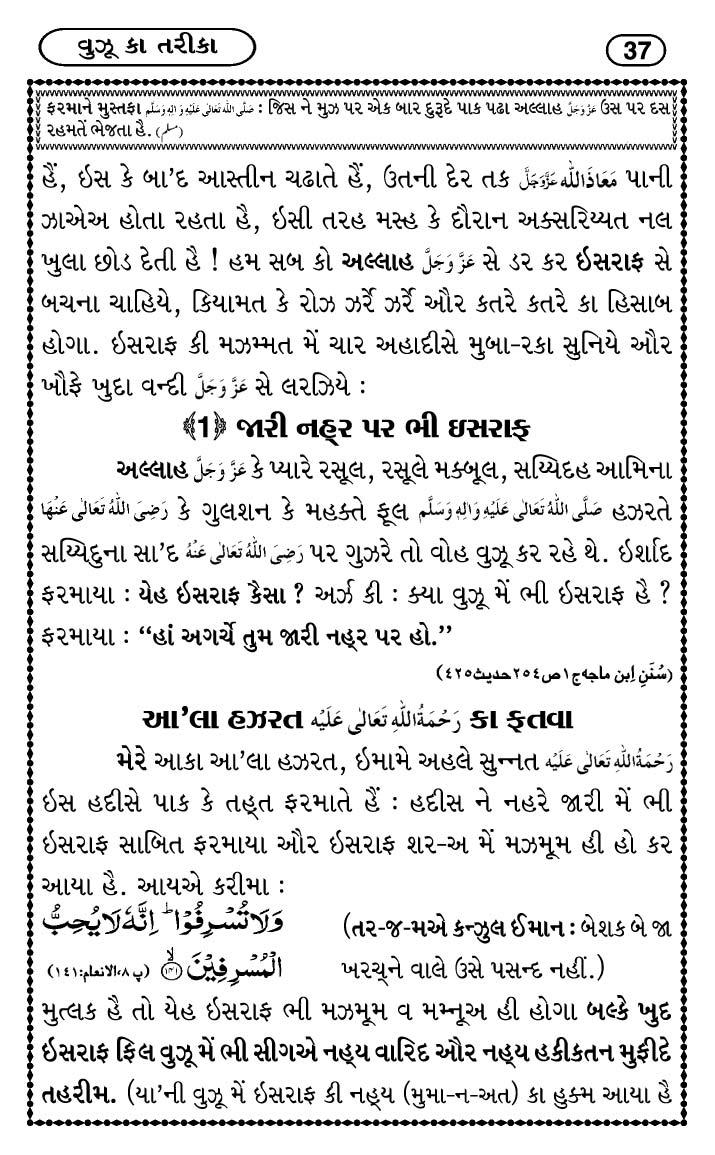 વુઝૂ કા તરીકા
37
ફરમાને મુસ્તફા صَلَّى اللهُ تَعَالٰى عَلَيْهِ وَاٰلِهٖ وَسَلَّم : જિસ ને મુઝ પર એક બાર દુરૂદે પાક પઢા અલ્લાહ عَزَّوَجَلَّ ઉસ પર દસ
રહમતેં ભેજતા હૈ. (مسلم)
હૈં, ઇસ કે બા’દ આસ્તીન ચઢાતે હૈં, ઉતની દેર તક مَعَاذَاللّٰه عَزَّوَجَلَّ પાની
ઝાએઅ હોતા રહતા હૈ, ઇસી તરહ મસ્હ કે દૌરાન અક્સરિય્યત નલ
ખુલા છોડ દેતી હૈ ! હમ સબ કો અલ્લાહ عَزَّوَجَلَّ સે ડર કર ઇસરાફ સે
બચના ચાહિયે, કિયામત કે રોઝ ઝર્રે ઝર્રે ઔર કતરે કતરે કા હિસાબ
હોગા. ઇસરાફ કી મઝમ્મત મેં ચાર અહાદીસે મુબા-રકા સુનિયે ઔર
ખૌફે ખુદા વન્દી عَزَّوَجَلَّ સે લરઝિયે :
﴾1﴿ જારી નહ્ર પર ભી ઇસરાફ
અલ્લાહ عَزَّوَجَلَّ કે પ્યારે રસૂલ, રસૂલે મક્બૂલ, સય્યિદહ આમિના
رَضِىَ اللهُ تَعَالٰى عَنْهَا કે ગુલશન કે મહક્તે ફૂલ صَلَّى اللهُ تَعَالٰى عَلَيْهِ وَاٰلِهٖ وَسَلَّم હઝરતે
સય્યિદુના સા’દ رَضِىَ اللهُ تَعَالٰى عَنْهُ પર ગુઝરે તો વોહ વુઝૂ કર રહે થે. ઇર્શાદ
ફરમાયા : યેહ ઇસરાફ કૈસા ? અર્ઝ કી : ક્યા વુઝૂ મેં ભી ઇસરાફ હૈ ?
ફરમાયા : “હાં અગર્ચે તુમ જારી નહ્ર પર હો.”
(سُنَنِ اِبن ماجه ج١ ص٢٥٤ حديث ٤٢٥)
આ’લા હઝરત رَحْمَةُ اللهِ تَعَالٰى عَلَيْهِ કા ફતવા
મેરે આકા આ’લા હઝરત, ઇમામે અહલે સુન્નત رَحْمَةُ اللهِ تَعَالٰى عَلَيْهِ
ઇસ હદીસે પાક કે તહ્ત ફરમાતે હૈં : હદીસ ને નહરે જારી મેં ભી
ઇસરાફ સાબિત ફરમાયા ઔર ઇસરાફ શર-અ મેં મઝમૂમ હી હો કર
આયા હૈ. આયએ કરીમા :
وَلَا تُسْرِفُوْا ؕ اِنَّهٗ لَا يُحِبُّ
الْمُسْرِفِيْنَ ﴿١٤١﴾ (پ ٨، الانعام: ١٤١)
(તર-જ-મએ કન્ઝુલ ઈમાન : બેશક બે જા
ખરચ્ને વાલે ઉસે પસન્દ નહીં.)
મુત્લક હૈ તો યેહ ઇસરાફ ભી મઝમૂમ વ મમ્નૂઅ હી હોગા બલ્કે ખુદ
ઇસરાફ ફિલ વુઝૂ મેં ભી સીગએ નહ્ય વારિદ ઔર નહ્ય હકીકતન મુફીદે
તહરીમ. (યા’ની વુઝૂ મેં ઇસરાફ કી નહ્ય (મુમા-ન-અત) કા હુક્મ આયા હૈ